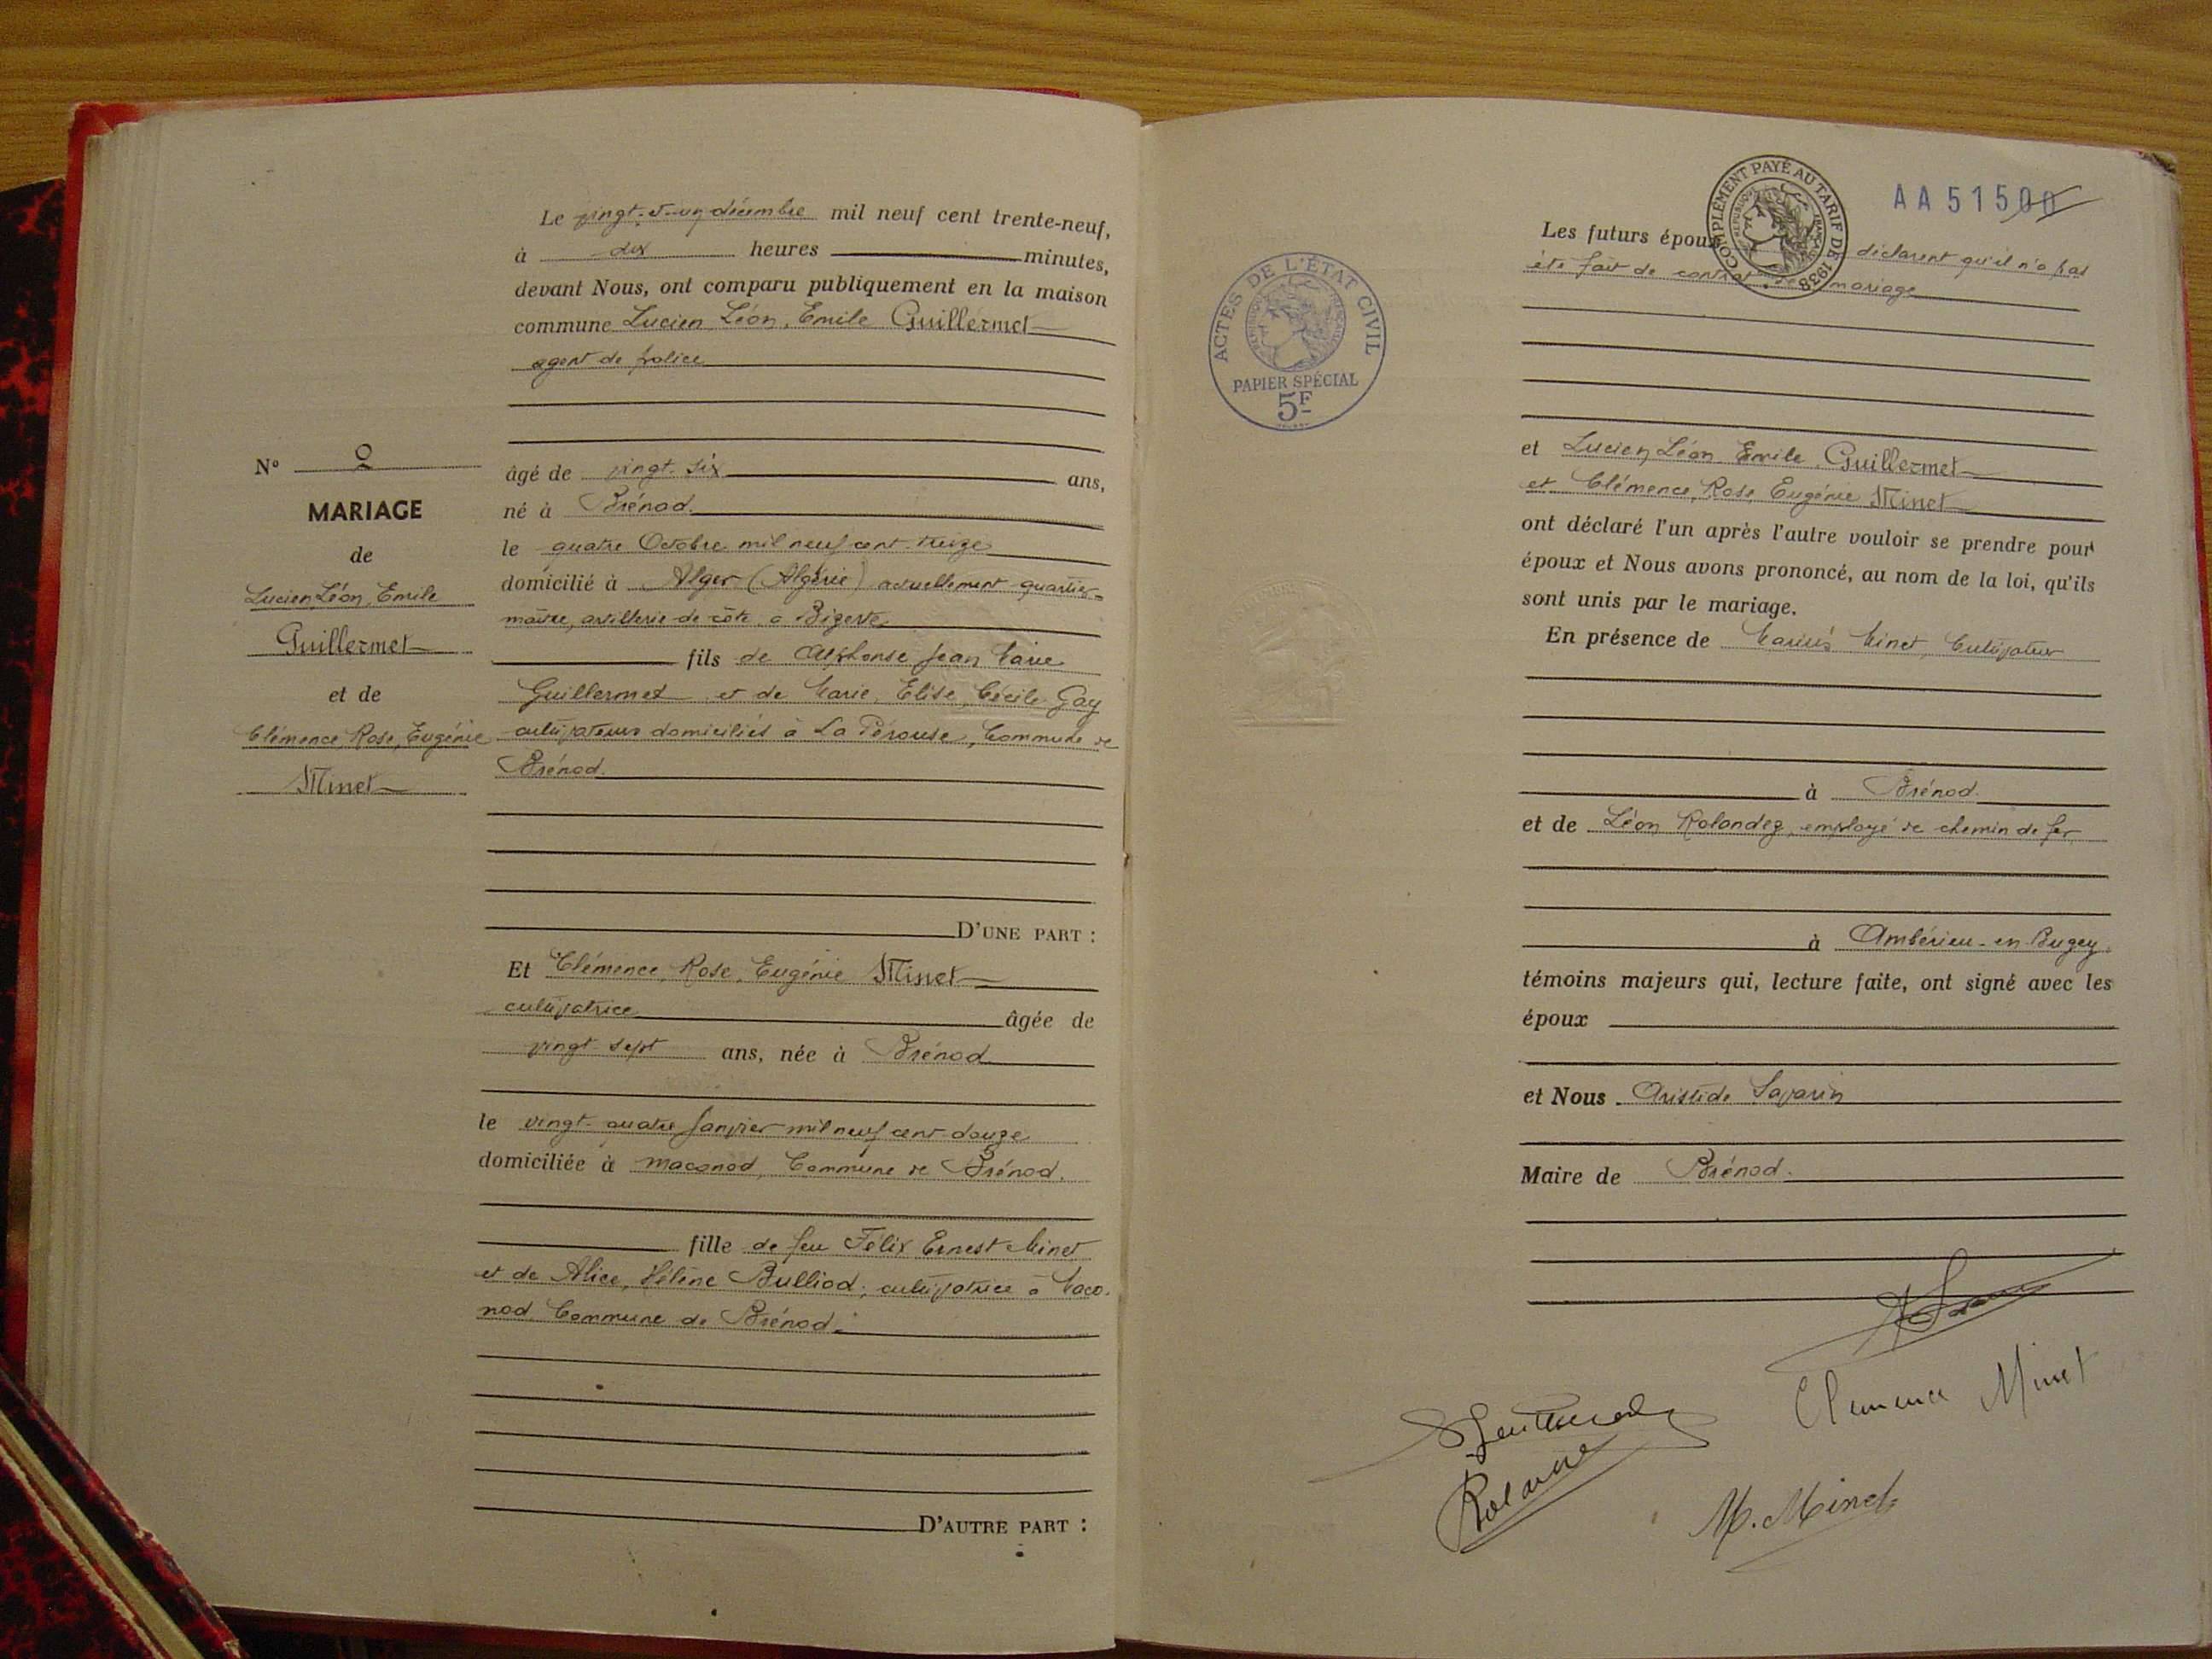 Le vingt-et-un décembre mil neuf cent trente-neuf,
à dix heures minutes,
devant Nous, ont comparu publiquement en la maison
commune Lucien Léon, Emile Guillermet
agent de police
N°
MARIAGE
de
Lucien, Léon, Emile
Guillermet
et de
Clémence, Rose, Eugénie
Minet
âgé de vingt-six ans,
né à Brénod
le quatre Octobre mil neuf cent treize
domicilié à Alger (Algérie) actuellement quartier-
maître, artillerie de côte à Bizerte
fils de Alphonse Jean Marie
Guillermet et de Marie, Elise, Cécile Gay
cultivateurs domiciliés à La Pérouse, Commune de
Brénod.
D'UNE PART :
Et Clémence, Rose, Eugénie Minet
cultivatrice âgée de
vingt-sept ans, née à Brénod
le vingt-quatre Janvier mil neuf cent douze
domiciliée à Maconod, Commune de Brénod.
fille de feu Félix Ernest Minet
et de Alice, Hélène Bulliod, cultivatrice à Maco-
nod, Commune de Brénod.
D'AUTRE PART :
ACTES DE L'ÉTAT CIVIL
RÉPUBLIQUE FRANÇAISE
PAPIER SPÉCIAL
5F
COMPLÉMENT PAYÉ AU TARIF DE 1938
RÉPUBLIQUE FRANÇAISE
AA 51500
Les futurs époux déclarent qu'il n'a pas
été fait de contrat de mariage
et Lucien, Léon Emile Guillermet
et Clémence, Rose, Eugénie Minet
ont déclaré l'un après l'autre vouloir se prendre pour
époux et Nous avons prononcé, au nom de la loi, qu'ils
sont unis par le mariage.
En présence de Marius Minet, Cultivateur
à Brénod.
et de Léon Rolandez, employé de chemin de fer
à Ambérieu-en-Bugey.
témoins majeurs qui, lecture faite, ont signé avec les
époux
et Nous Aristide Savarin
Maire de Brénod.
Clemence Minet
M. Minet